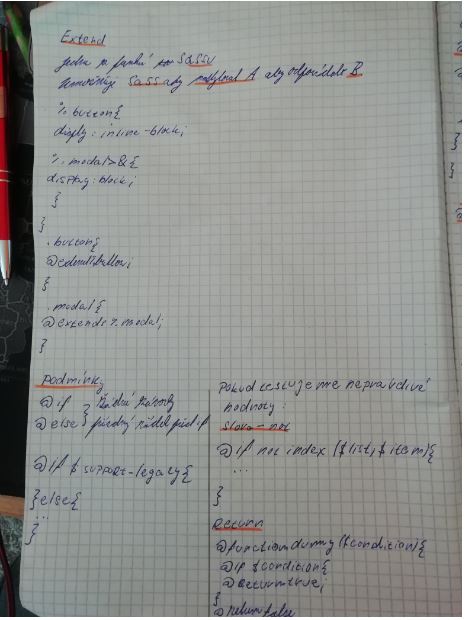 Extend
jedna z funkcí SASSU
umožňuje SASS aby A aby odpovídalo B
%.button{
display: inline-block;
%.modal>&{
display: block;
}
}
.button{
@extend%button;
}
.modal{
@extends%modal;
}
podmínky
@if } žádné závorky
@else prázdný řádek před if
@if $support-legacy{
}else{
...
}
Pokud testujeme nepravdivé
hodnoty:
slovo-not
@if not index ($list,$item){
...
}
Return
@function dummy($condition){
@if $condition{
@return true;
}
@return false